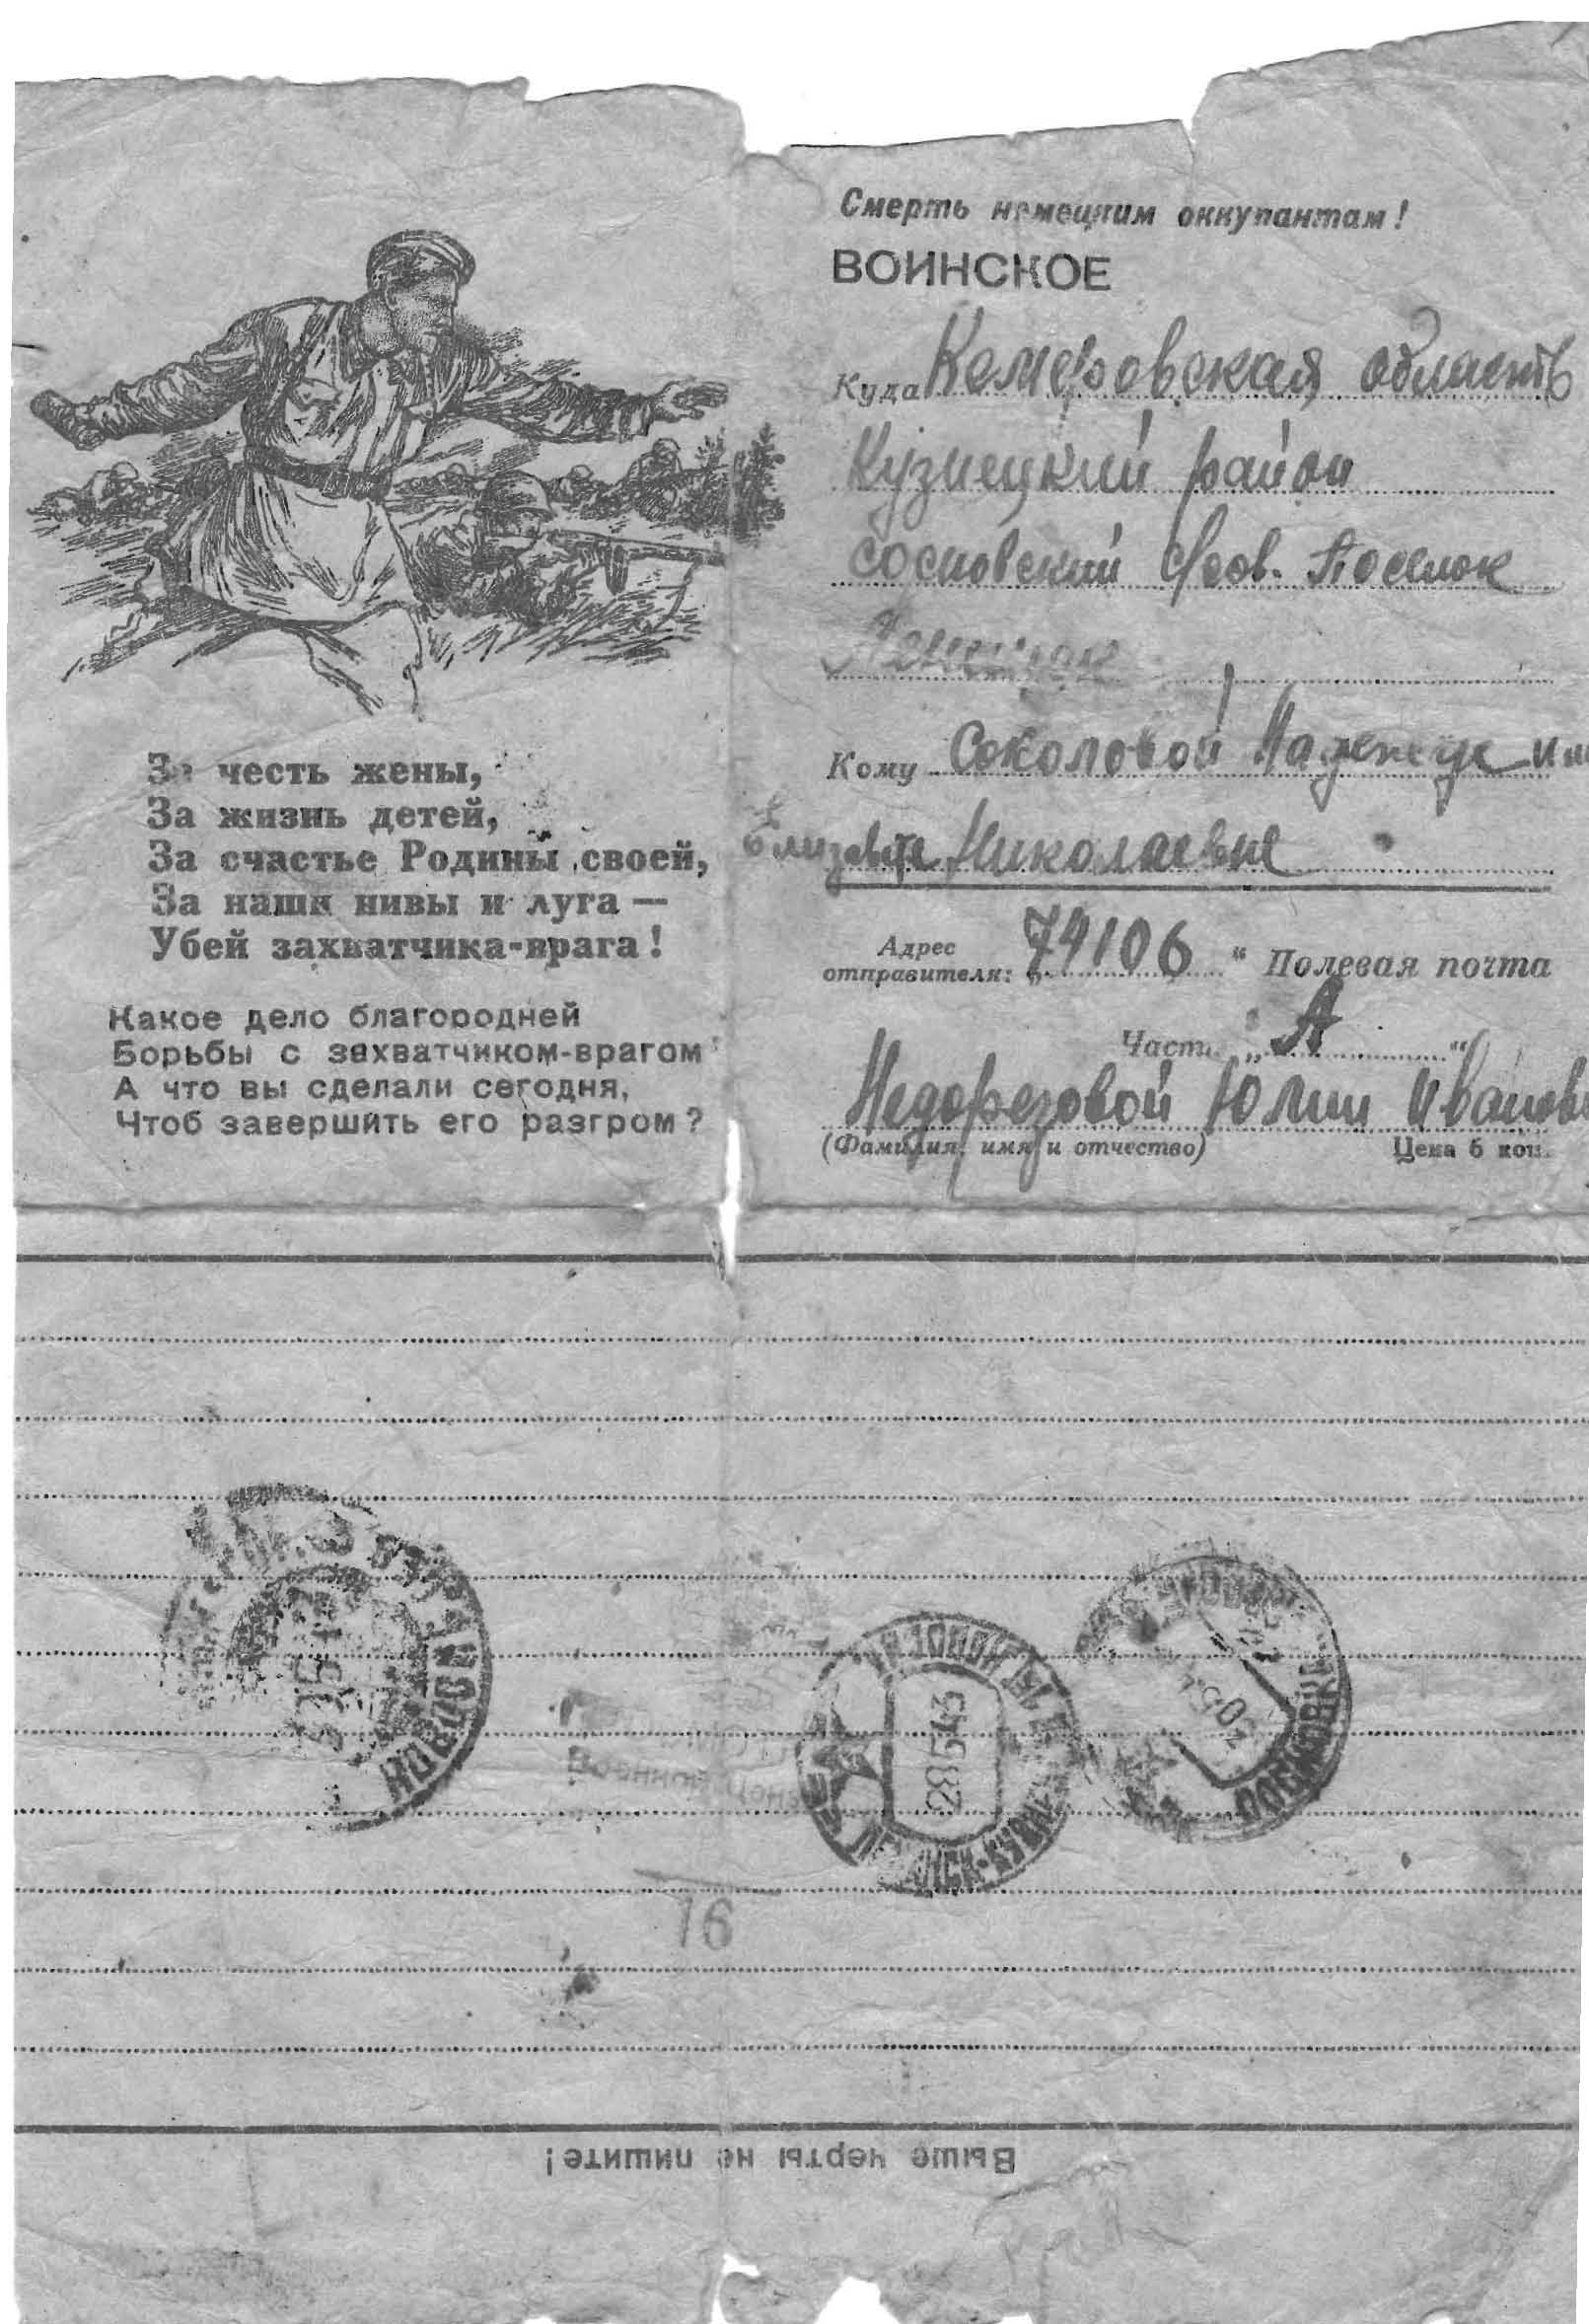 За честь жены,
За жизнь детей,
За счастье Родины своей,
За наши нивы и луга —
Убей захватчика-врага!
Какое дело благородней
Борьбы с захватчиком-врагом
А что вы сделали сегодня,
Чтоб завершить его разгром?
Смерть немецким оккупантам!
ВОИНСКОЕ
Куда Кемеровская область
Кузнецкий район
сосновский Посёлок
Кому Соколовой Надежде или
Елизавете Николаевне
Адрес отправителя: „74106“ Полевая почта
Часть „А“
Недорезовой Юлии
(Фамилия, имя и отчество) Цена 5 коп.
28 5 43
16
Выше черты не пишите!